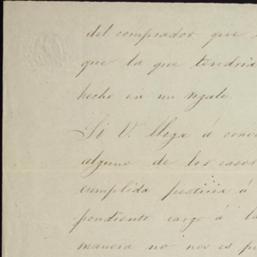 del comprador que
que la que tendria
hecho en un
Si V. llega á
alguno de los casos
cumplida justicia á
pondiente cargo á
manera no nos es